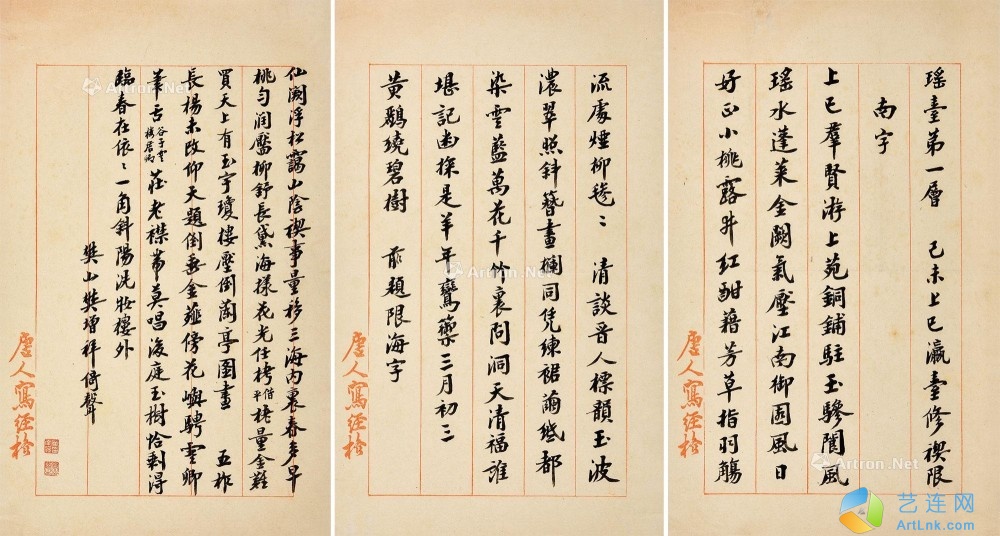 瑤臺第一層　己未上巳瀛臺修禊限
南字
上巳羣賢游上苑銅鋪駐玉驂閬風
瑤水蓬萊金闕氣壓江南御園風日
好正小桃露井紅酣藉芳草指羽觴
流處煙柳毿〻　清談晉人標韻玉波
濃翠照斜簪畫欄同凭練裙蘭紙都
染雲藍萬花千竹裏問洞天清福誰
堪記幽探是羊年鸞籥三月初三
黃鸝繞碧樹　前題限海字
仙闕浮松靄山陰禊事量移三海內裏春多早
桃勻潤靨柳舒長黛海樣花光任栲借平栳量金難
買天上有玉宇瓊樓壓倒蘭亭圖畫　五柞
長楊未改仰天題倒垂金薤傍花嶼騁雲卿
筆舌谷子雲樓君卿莊老襟帶莫唱後庭玉樹恰剩得
臨春在依〻一角斜陽洗妝樓外
樊山樊增祥倚聲
唐人寫經格
唐人寫經格
唐人寫經格
Artron.Net
Artron.Net
Artron.Net
Artron.Net
Artron.Net
艺连网
ArtLnk.com